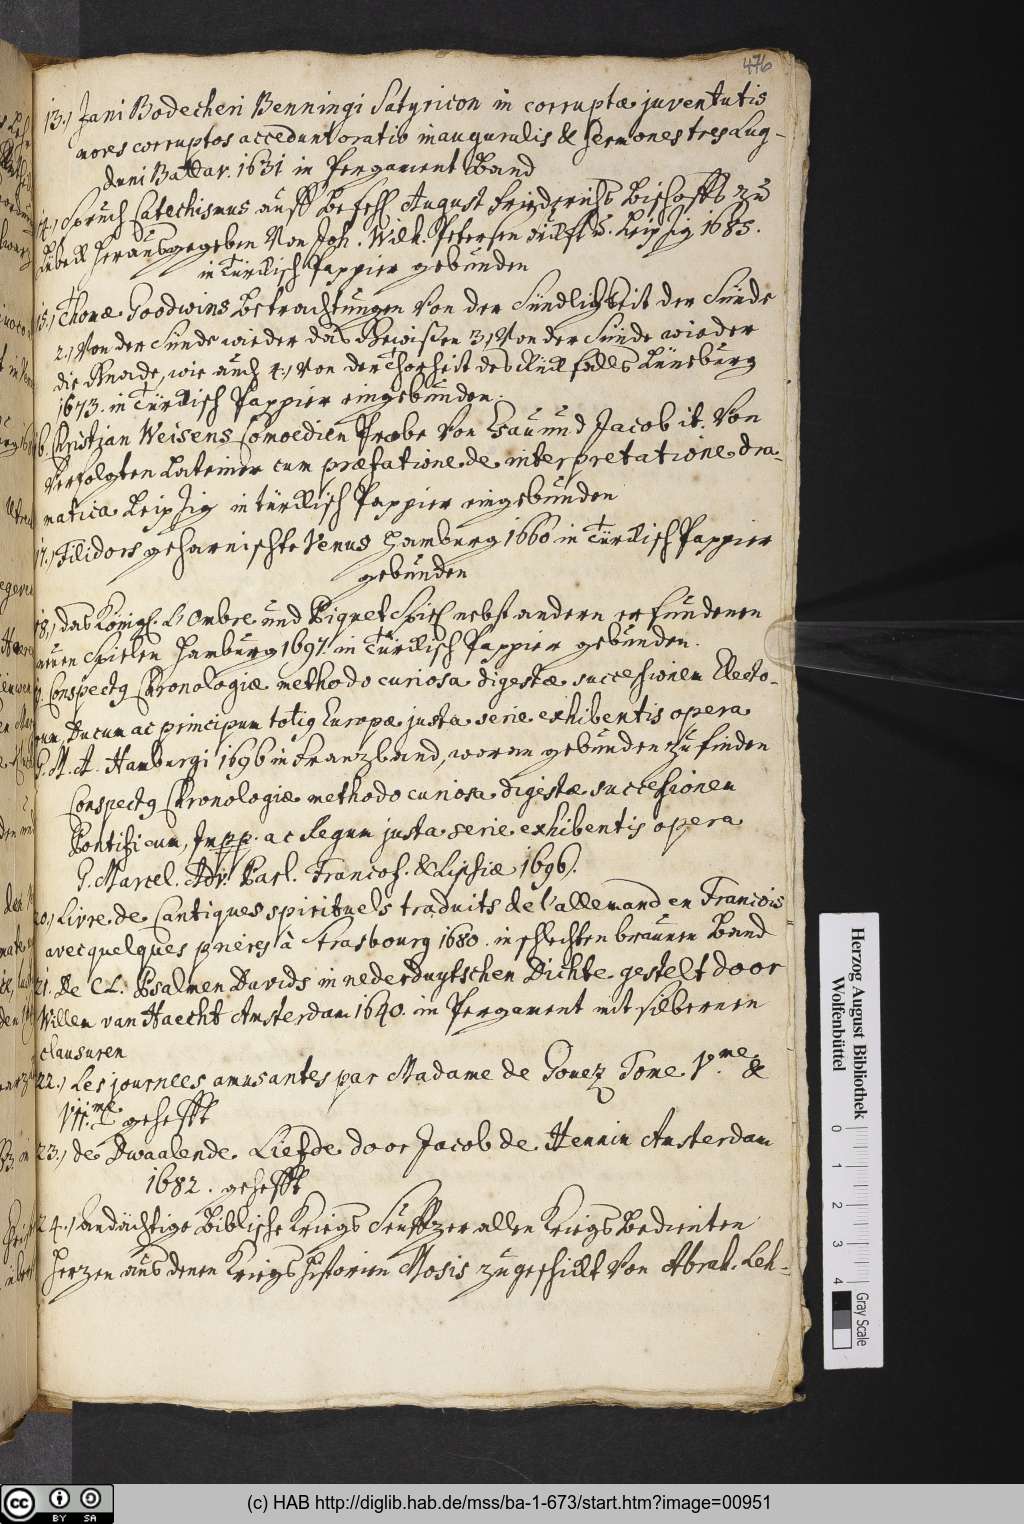 476
13.) Jani Bodecheri Benningi Satyricon in corruptæ juventutis
mores corruptos accedunt oratio inauguralis & sermones tres Lug-
duni Batav. 1631 in Pergament Band
14.) Spruch Catechismus auff Befehl August Friedrichs Bischoffs zu
Lübeck herausgegeben Von Joh. Wilh. Petersen Leipzig 1685.
in Türckisch Pappier gebunden
15.) Thomæ Goodwins Betrachtungen Von der Sündlichkeit der Sünde
2.) Von der Sünde wieder das Gewißen 3.) Von der Sünde wieder
die Gnade, wie auch 4.) Von der Thorheit des Rückfalls Lüneburg
1673. in Türckisch Pappier eingebunden.
16. Christian Weisens Comoedien Probe Von Esau und Jacob it. Von
Verfolgten Lateiner cum præfatione de interpretatione dra-
matica Leipzig in türckisch Pappier eingebunden
17.) Filidors geharnischte Venus Hamburg 1660 in Türckisch Pappier
gebunden
18.) das Königl. L'Ombre und Piquet Spiel nebst andern erfundenen
neuen Spielen Hamburg 1697. in Türckisch Pappier gebunden.
19. Conspectq Chronologiæ methodo curiosa digestæ successionem Electo-
rum, Ducum ac principum totiq Europæ justa serie exhibentis opera
G. M. A. Hamburgi 1696 in Franzband, woran gebunden zu finden
Conspectq Chronologiæ methodo curiosa digestæ successionem
Pontificum, Impp. ac Regum justa serie exhibentis opera
G. Marcel. Adv. Parl. Francof. & Lipsiæ 1696.
20.) Livre de Cantiques spirituels traduits de l'allemand en Francois
avec quelques prieres à Strasbourg 1680. in schlechten braunen Band
21. De CL. Psalmen Davids in nederduytschen Dichte gestelt door
Willem van Haecht Amsterdam 1640. in Pergament mit silbernen
clausuren
22.) Les journees amusantes par Madame de Gomez Tome V.me &
VII.me gehefft
23.) de Dwaalende Liefde door Jacob de Hennin Amsterdam
1682. gehefft
24.) Andächtige Biblische Kriegs Seuffzer allen Kriegs Bedienten
Herzen aus denen Kriegs Historien Mosis zugeschickt Von Abrah. Leh-
Herzog August Bibliothek
Wolfenbüttel
0 1 2 3 4
Gray Scale
cc BY SA
(c) HAB http://diglib.hab.de/mss/ba-1-673/start.htm?image=00951